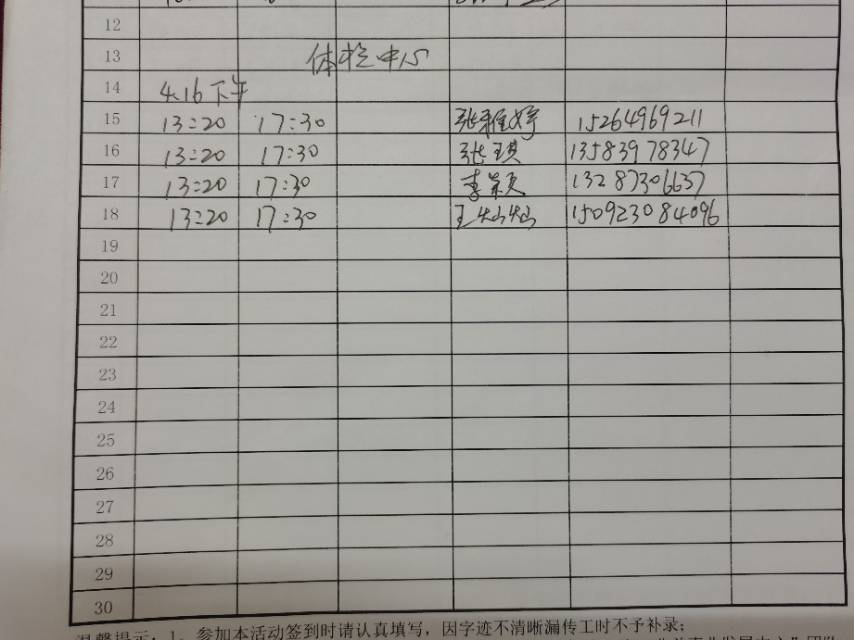 12
13 体检中心
14 4.16下午
15 13:20 17:30 张雅婷 15264969211
16 13:20 17:30 张琪 13583978347
17 13:20 17:30 李 13287306637
18 13:20 17:30 王灿灿 150923084096
19
20
21
22
23
24
25
26
27
28
29
30
温馨提示:1、参加本活动签到时请认真填写,因字迹不清晰漏传工时不予补录;